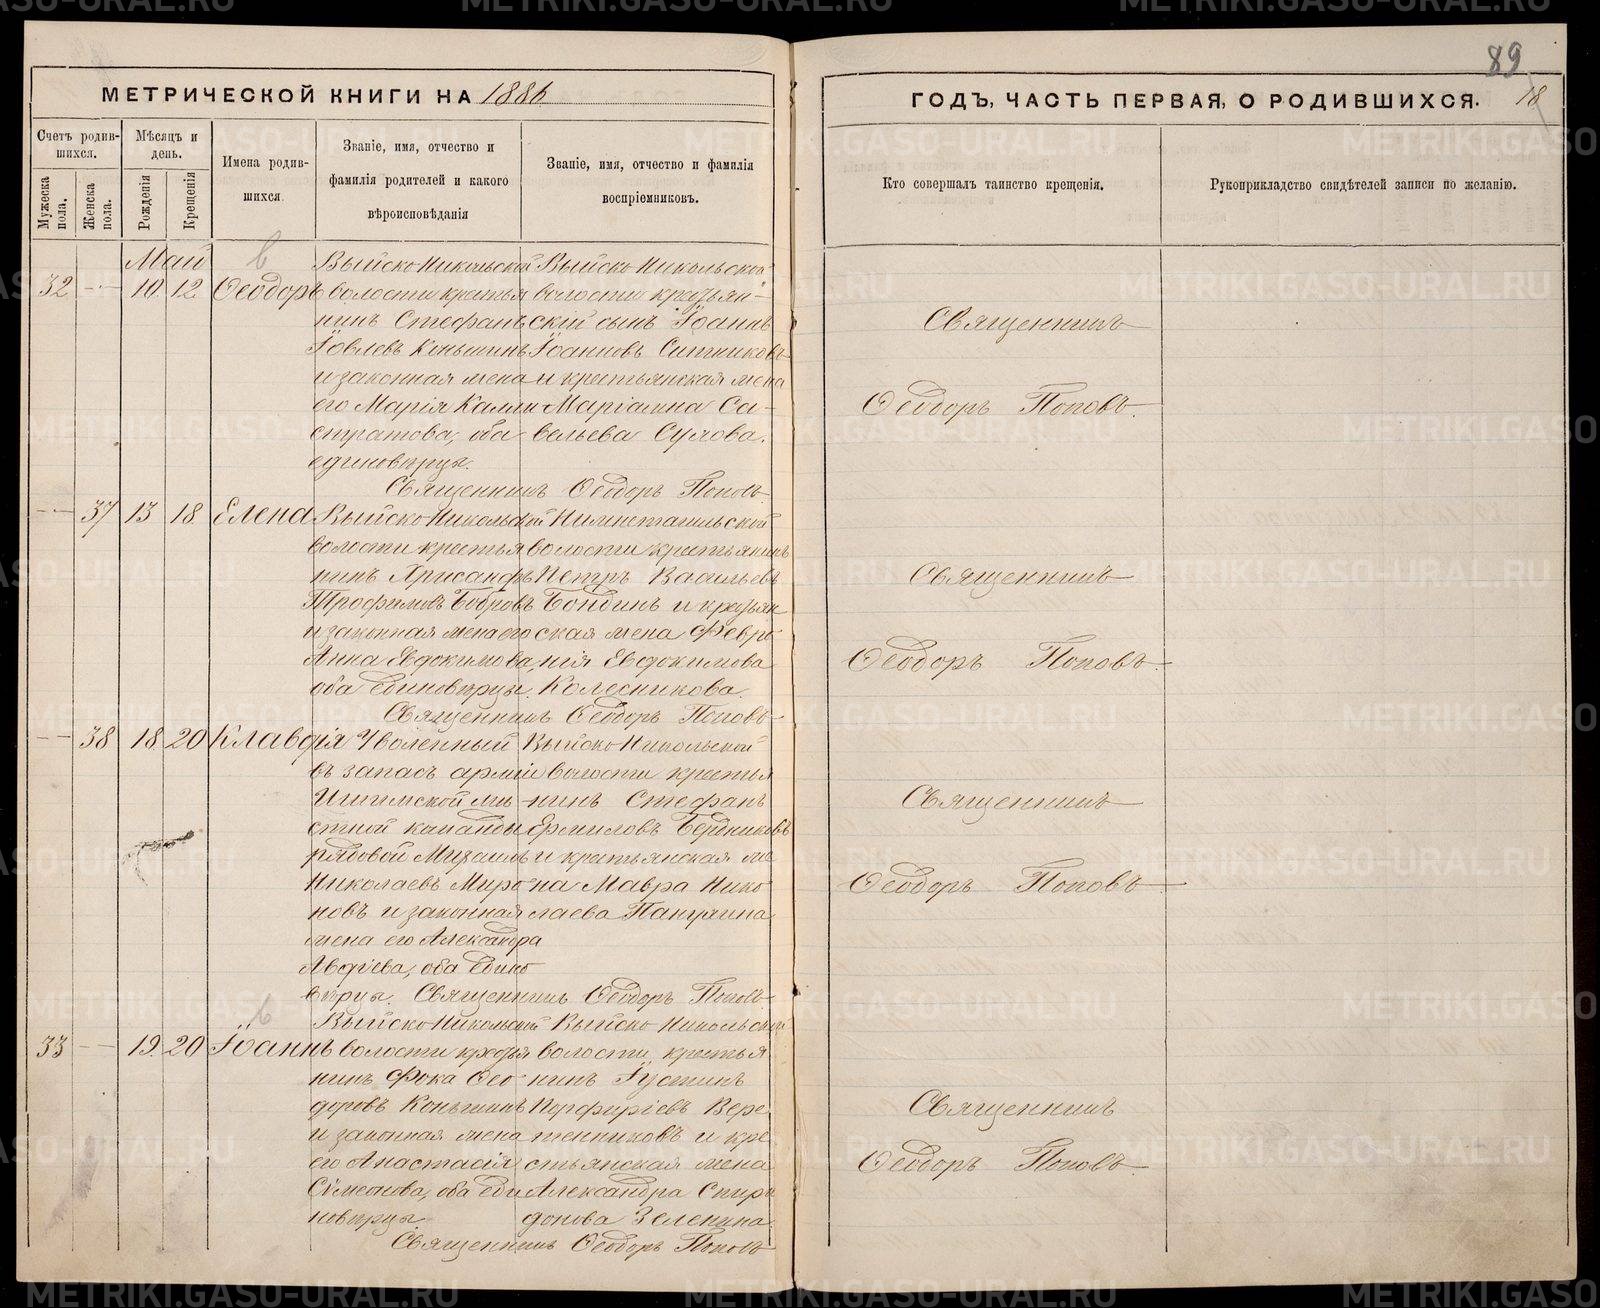 89
МЕТРИЧЕСКОЙ КНИГИ НА 1886
ГОДЪ, ЧАСТЬ ПЕРВАЯ, О РОДИВШИХСЯ. 18
Счетъ родив-
шихся.
Мужеска пола.
Женска пола.
Мѣсяцъ и
день.
Рожденія
Крещенія
Имена родив-
шихся.
Званіе, имя, отчество и
фамилія родителей и какого
вѣроисповѣданія
Званіе, имя, отчество и фамилія
воспріемниковъ.
Кто совершалъ таинство крещенія.
Рукоприкладство свидѣтелей записи по желанію.
Май
32 10 12 Ѳеодоръ
Выйско-Никольской
волости крестья
нинъ Стефанъ
Іовлевъ Коньшинъ
и законная жена
его Марія Калли
стратова, оба
единовѣрцы.
Выйско-Никольской
волости крестьян-
скій сынъ Іоаннъ
Іоанновъ Ситниковъ
и крестьянская жена
Маріамна Са-
вельева Сухова.
Священникъ Ѳеодоръ Поповъ
Священникъ
Ѳеодоръ Поповъ.
37 13 18 Елена
Выйско-Никольской
волости крестья
нинъ Хрисанфъ
Трофимовъ Бобровъ
и законная жена его
Анна Евдокимова,
оба единовѣрцы.
Нижнетагильской
волости крестьянинъ
Петръ Васильевъ
Бондинъ и крестьян
ская жена Февро
нія Евдокимова
Колесникова.
Священникъ Ѳеодоръ Поповъ
Священникъ
Ѳеодоръ Поповъ.
38 18 20 Клавдія
Уволенный
въ запасъ арміи
Ишимской мѣ
стной команды
рядовой Михаилъ
Николаевъ Миро
новъ и законная
жена его Александра
Авдіева, оба едино
вѣрцы.
Выйско-Никольской
волости крестья
нинъ Стефанъ
Ермиловъ Бердниковъ
и крестьянская же
на Мавра Нико
лаева
Священникъ Ѳеодоръ Поповъ
Священникъ
Ѳеодоръ Поповъ
33 19 20 Іоаннъ
Выйско-Никольской
волости крестья
нинъ Фока Ѳео
доровъ Коньшинъ
и законная жена
его Анастасія
Сімеонова, оба еди
новѣрцы.
Выйско-Никольской
волости крестья
нинъ Іустинъ
Порфиріевъ Вере
тенниковъ и кре
стьянская жена
Александра Спири
донова Зеленина
Священникъ Ѳеодоръ Поповъ
Священникъ
Ѳеодоръ Поповъ
METRIKI.GASO-URAL.RU